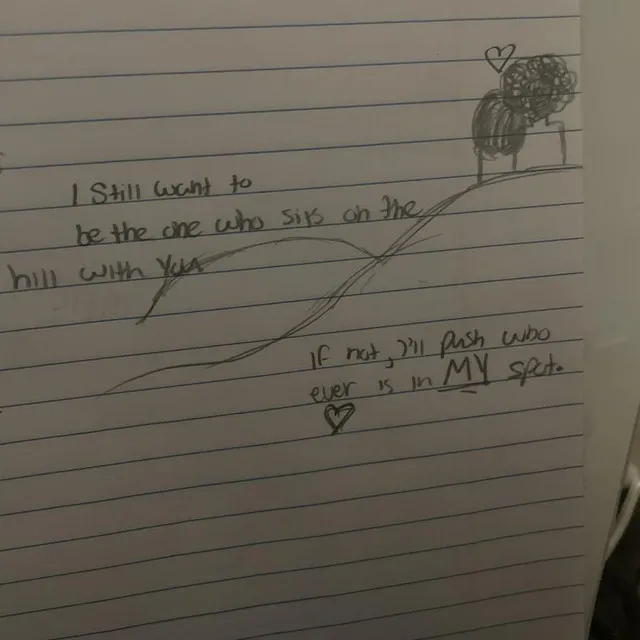 I Still want to
be the one who sits on the
hill with you
If not, I'll push who
ever is in MY spot.